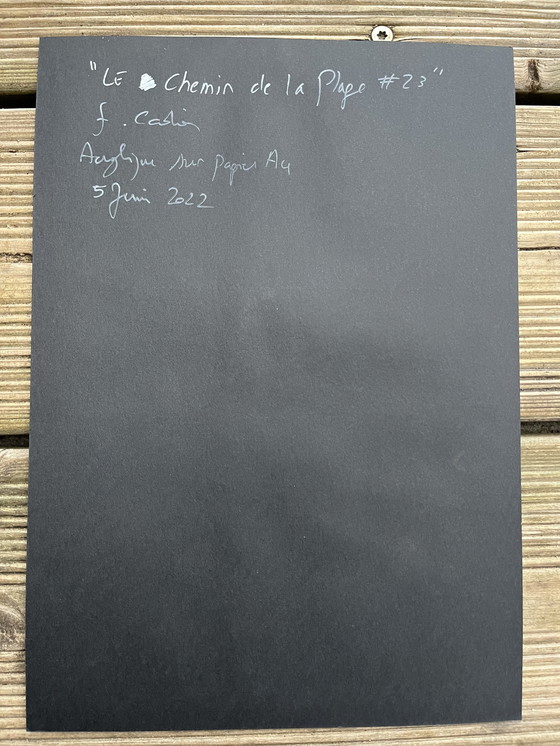 "LE Chemin de la Plage #23"
f.
Acrylique sur papier A4
5 Juin 2022